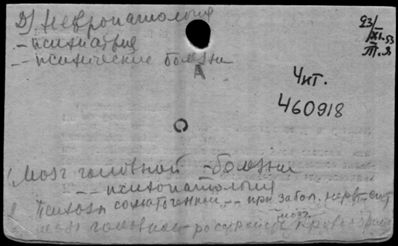 2) Невропатология
– психиатрия
– психические болезни
23/
XI.53
Т.Я
Чит.
460918
1 Мозг головной – болезни
– – психопатология
2 Психозы соматогенный – при забол. нерв. сист
мозг головной – расстройств кровообращ
мозг.